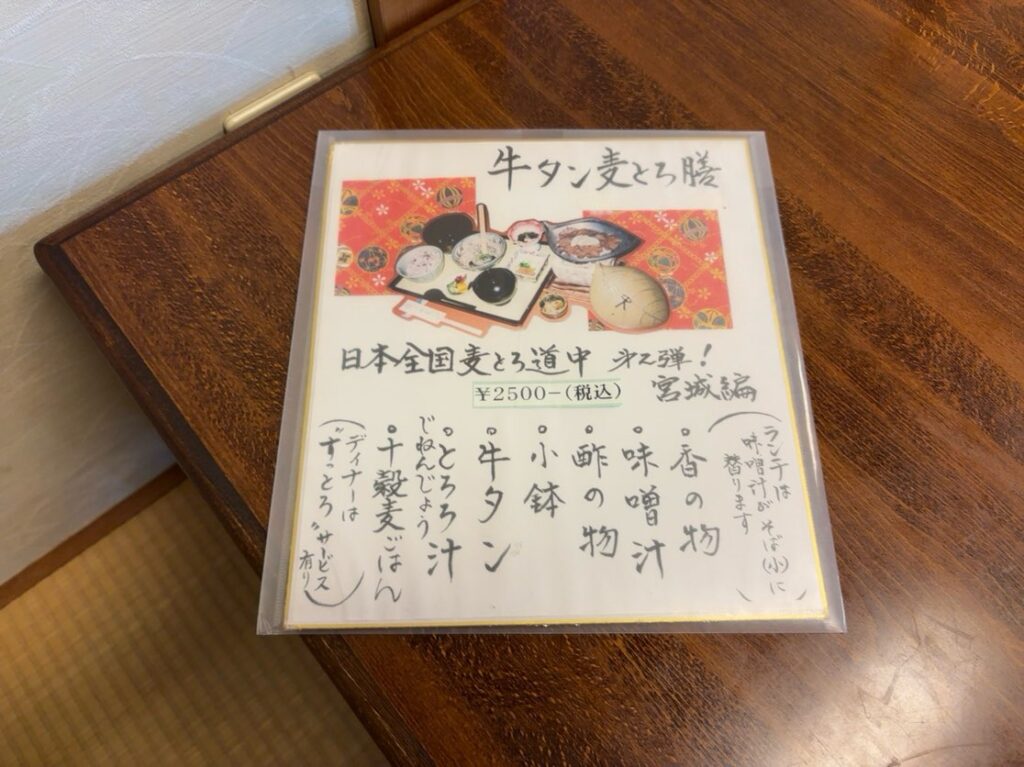 牛タン麦とろ膳
日本全国麦とろ道中 㐧2弾!
宮城編
¥2500-(税込)
(ランチは
味噌汁がそば(小)に
替ります)
•香の物
•味噌汁
•酢の物
•小鉢
•牛タン
•とろろ汁
じねんじょう
•十穀麦ごはん
(ディナーは
"すっとろ"サービス
有り)